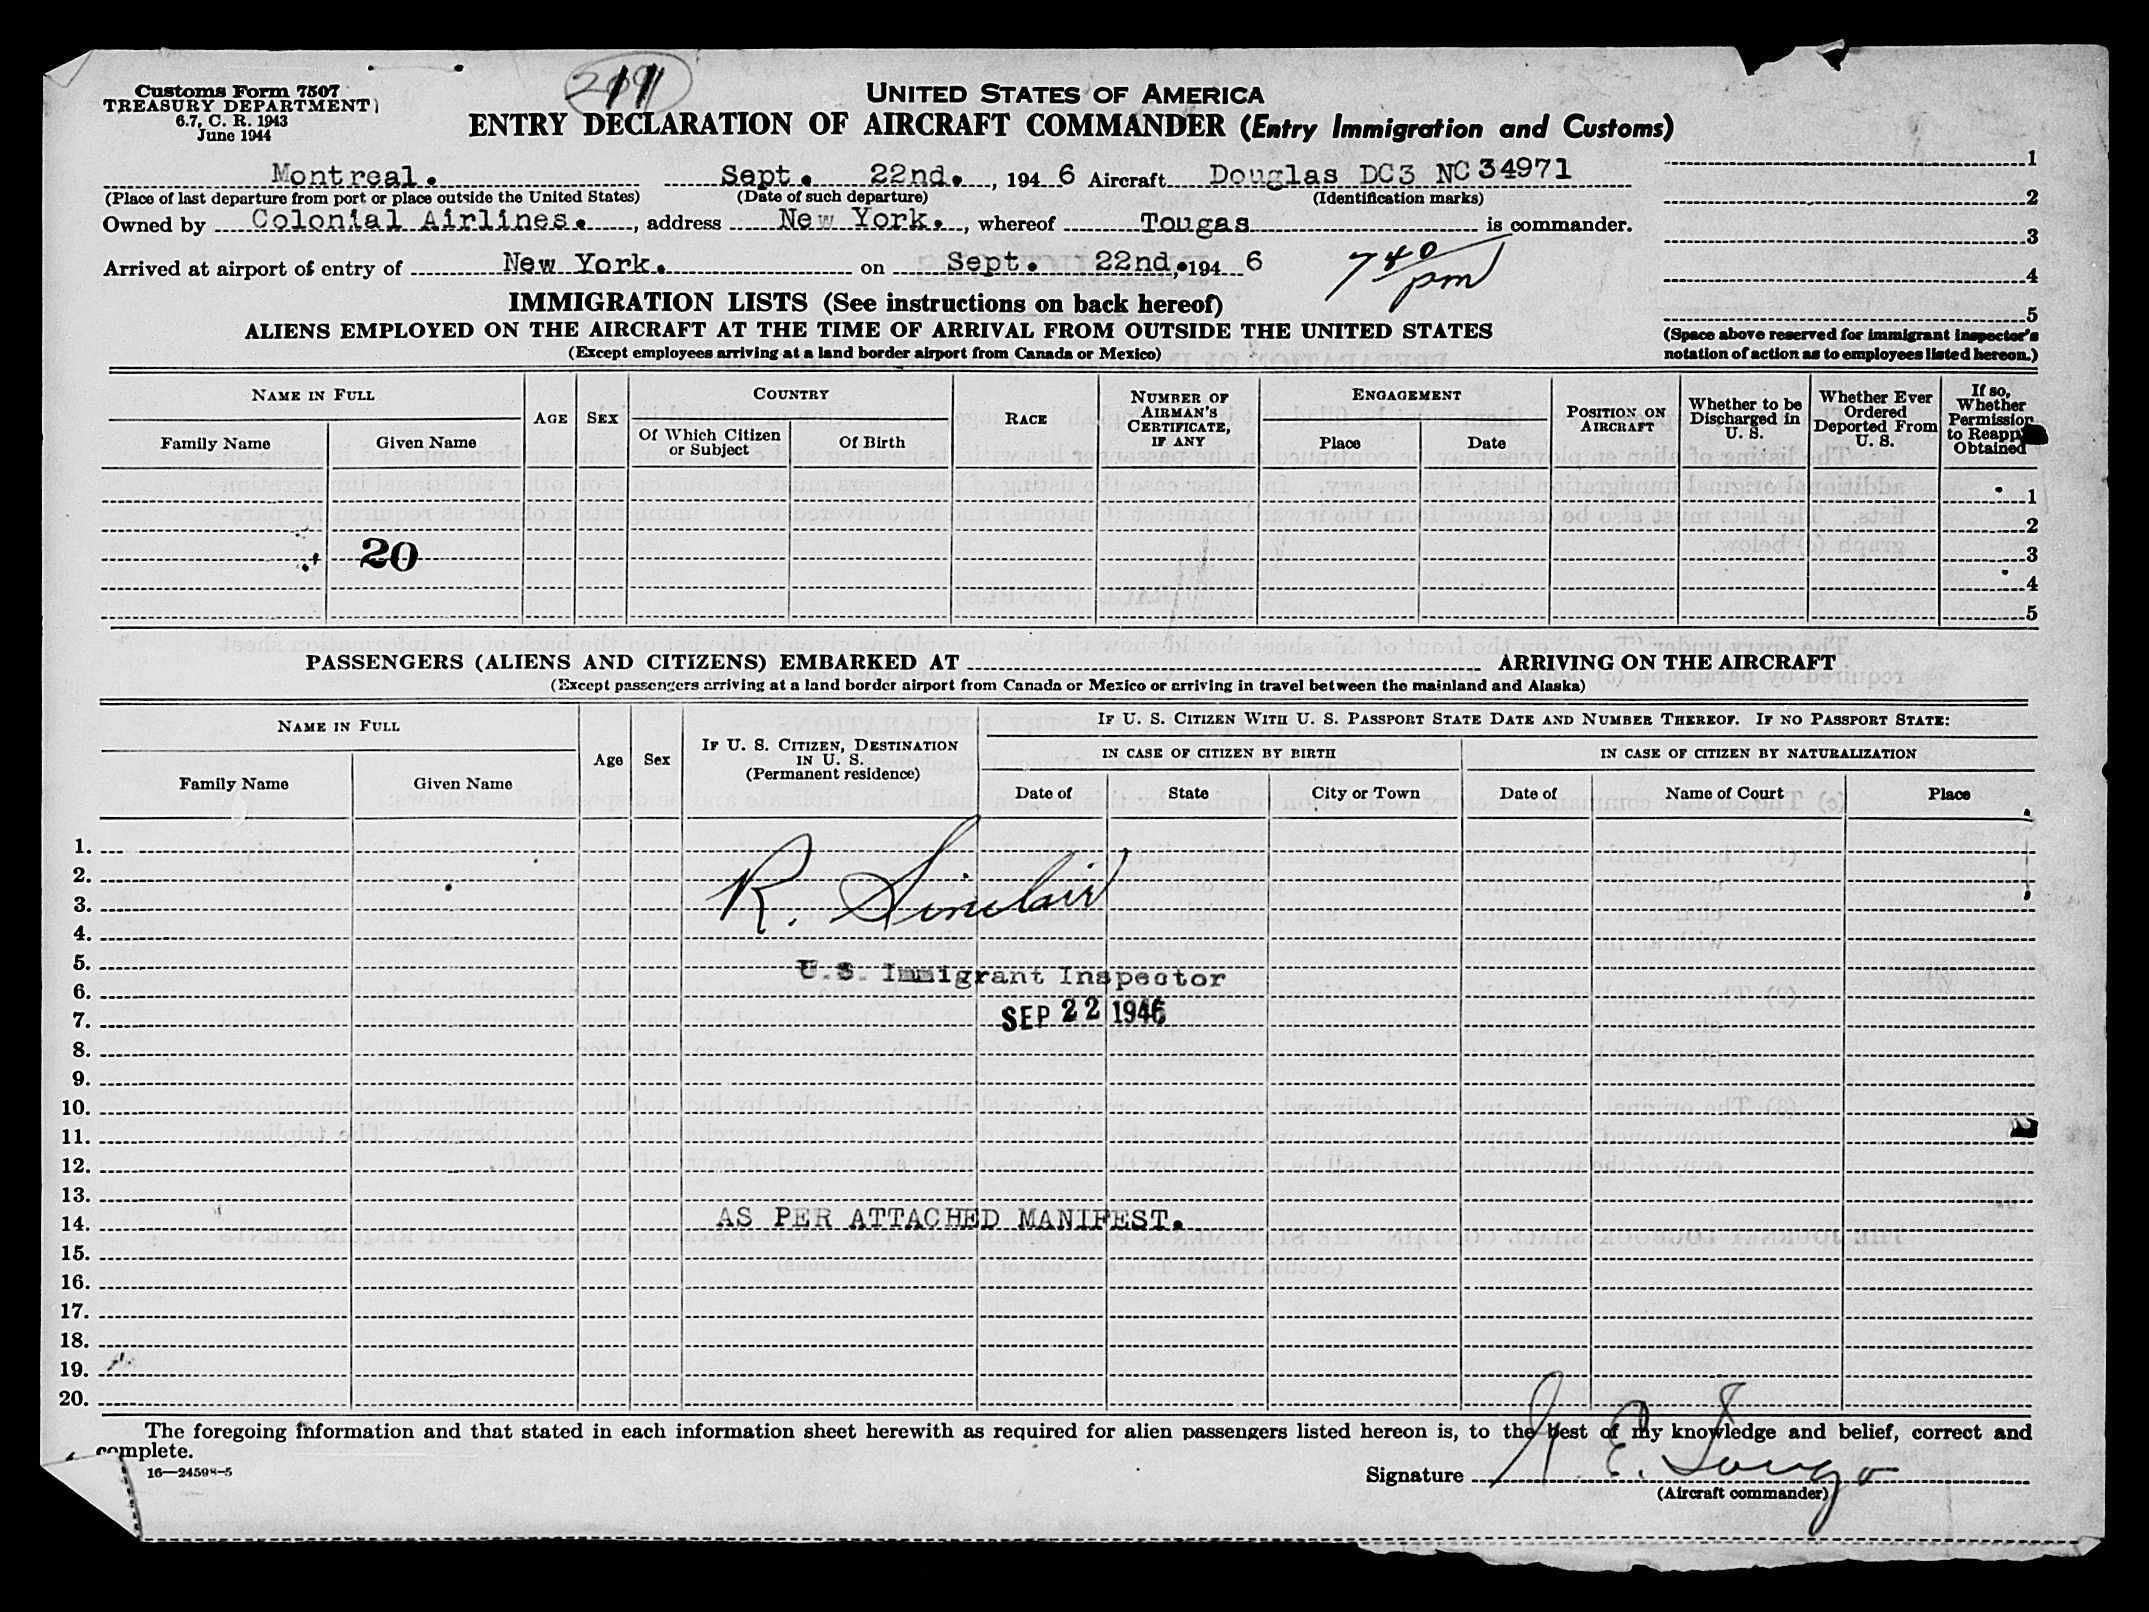 Customs Form 7507
TREASURY DEPARTMENT
6.7, C. R. 1943
June 1944
11
UNITED STATES OF AMERICA
ENTRY DECLARATION OF AIRCRAFT COMMANDER (Entry Immigration and Customs)
Montreal. Sept. 22nd. , 1946 Aircraft Douglas DC3 NC 34971
(Place of last departure from port or place outside the United States) (Date of such departure) (Identification marks)
Owned by Colonial Airlines. , address New York. , whereof Tougas is commander.
Arrived at airport of entry of New York. on Sept. 22nd, 1946
740 pm
1
2
3
4
5
(Space above reserved for immigrant inspector's
notation of action as to employees listed hereon.)
IMMIGRATION LISTS (See instructions on back hereof)
ALIENS EMPLOYED ON THE AIRCRAFT AT THE TIME OF ARRIVAL FROM OUTSIDE THE UNITED STATES
(Except employees arriving at a land border airport from Canada or Mexico)
NAME IN FULL
Family Name Given Name
AGE SEX
COUNTRY
Of Which Citizen or Subject Of Birth
RACE
NUMBER OF AIRMAN'S CERTIFICATE, IF ANY
ENGAGEMENT
Place Date
POSITION ON AIRCRAFT
Whether to be Discharged in U. S.
Whether Ever Ordered Deported From U. S.
If so, Whether Permission to Reapply Obtained
1
2
20 3
4
5
PASSENGERS (ALIENS AND CITIZENS) EMBARKED AT ARRIVING ON THE AIRCRAFT
(Except passengers arriving at a land border airport from Canada or Mexico or arriving in travel between the mainland and Alaska)
NAME IN FULL
Family Name Given Name
Age Sex
IF U. S. CITIZEN, DESTINATION IN U. S. (Permanent residence)
IF U. S. CITIZEN WITH U. S. PASSPORT STATE DATE AND NUMBER THEREOF. IF NO PASSPORT STATE:
IN CASE OF CITIZEN BY BIRTH IN CASE OF CITIZEN BY NATURALIZATION
Date of State City or Town Date of Name of Court Place
1.
2.
3. R. Sinclair
4.
5. U.S. Immigrant Inspector
6.
7. SEP 22 1946
8.
9.
10.
11.
12.
13.
14. AS PER ATTACHED MANIFEST.
15.
16.
17.
18.
19.
20.
The foregoing information and that stated in each information sheet herewith as required for alien passengers listed hereon is, to the best of my knowledge and belief, correct and
complete.
16—24598-5
Signature
(Aircraft commander)